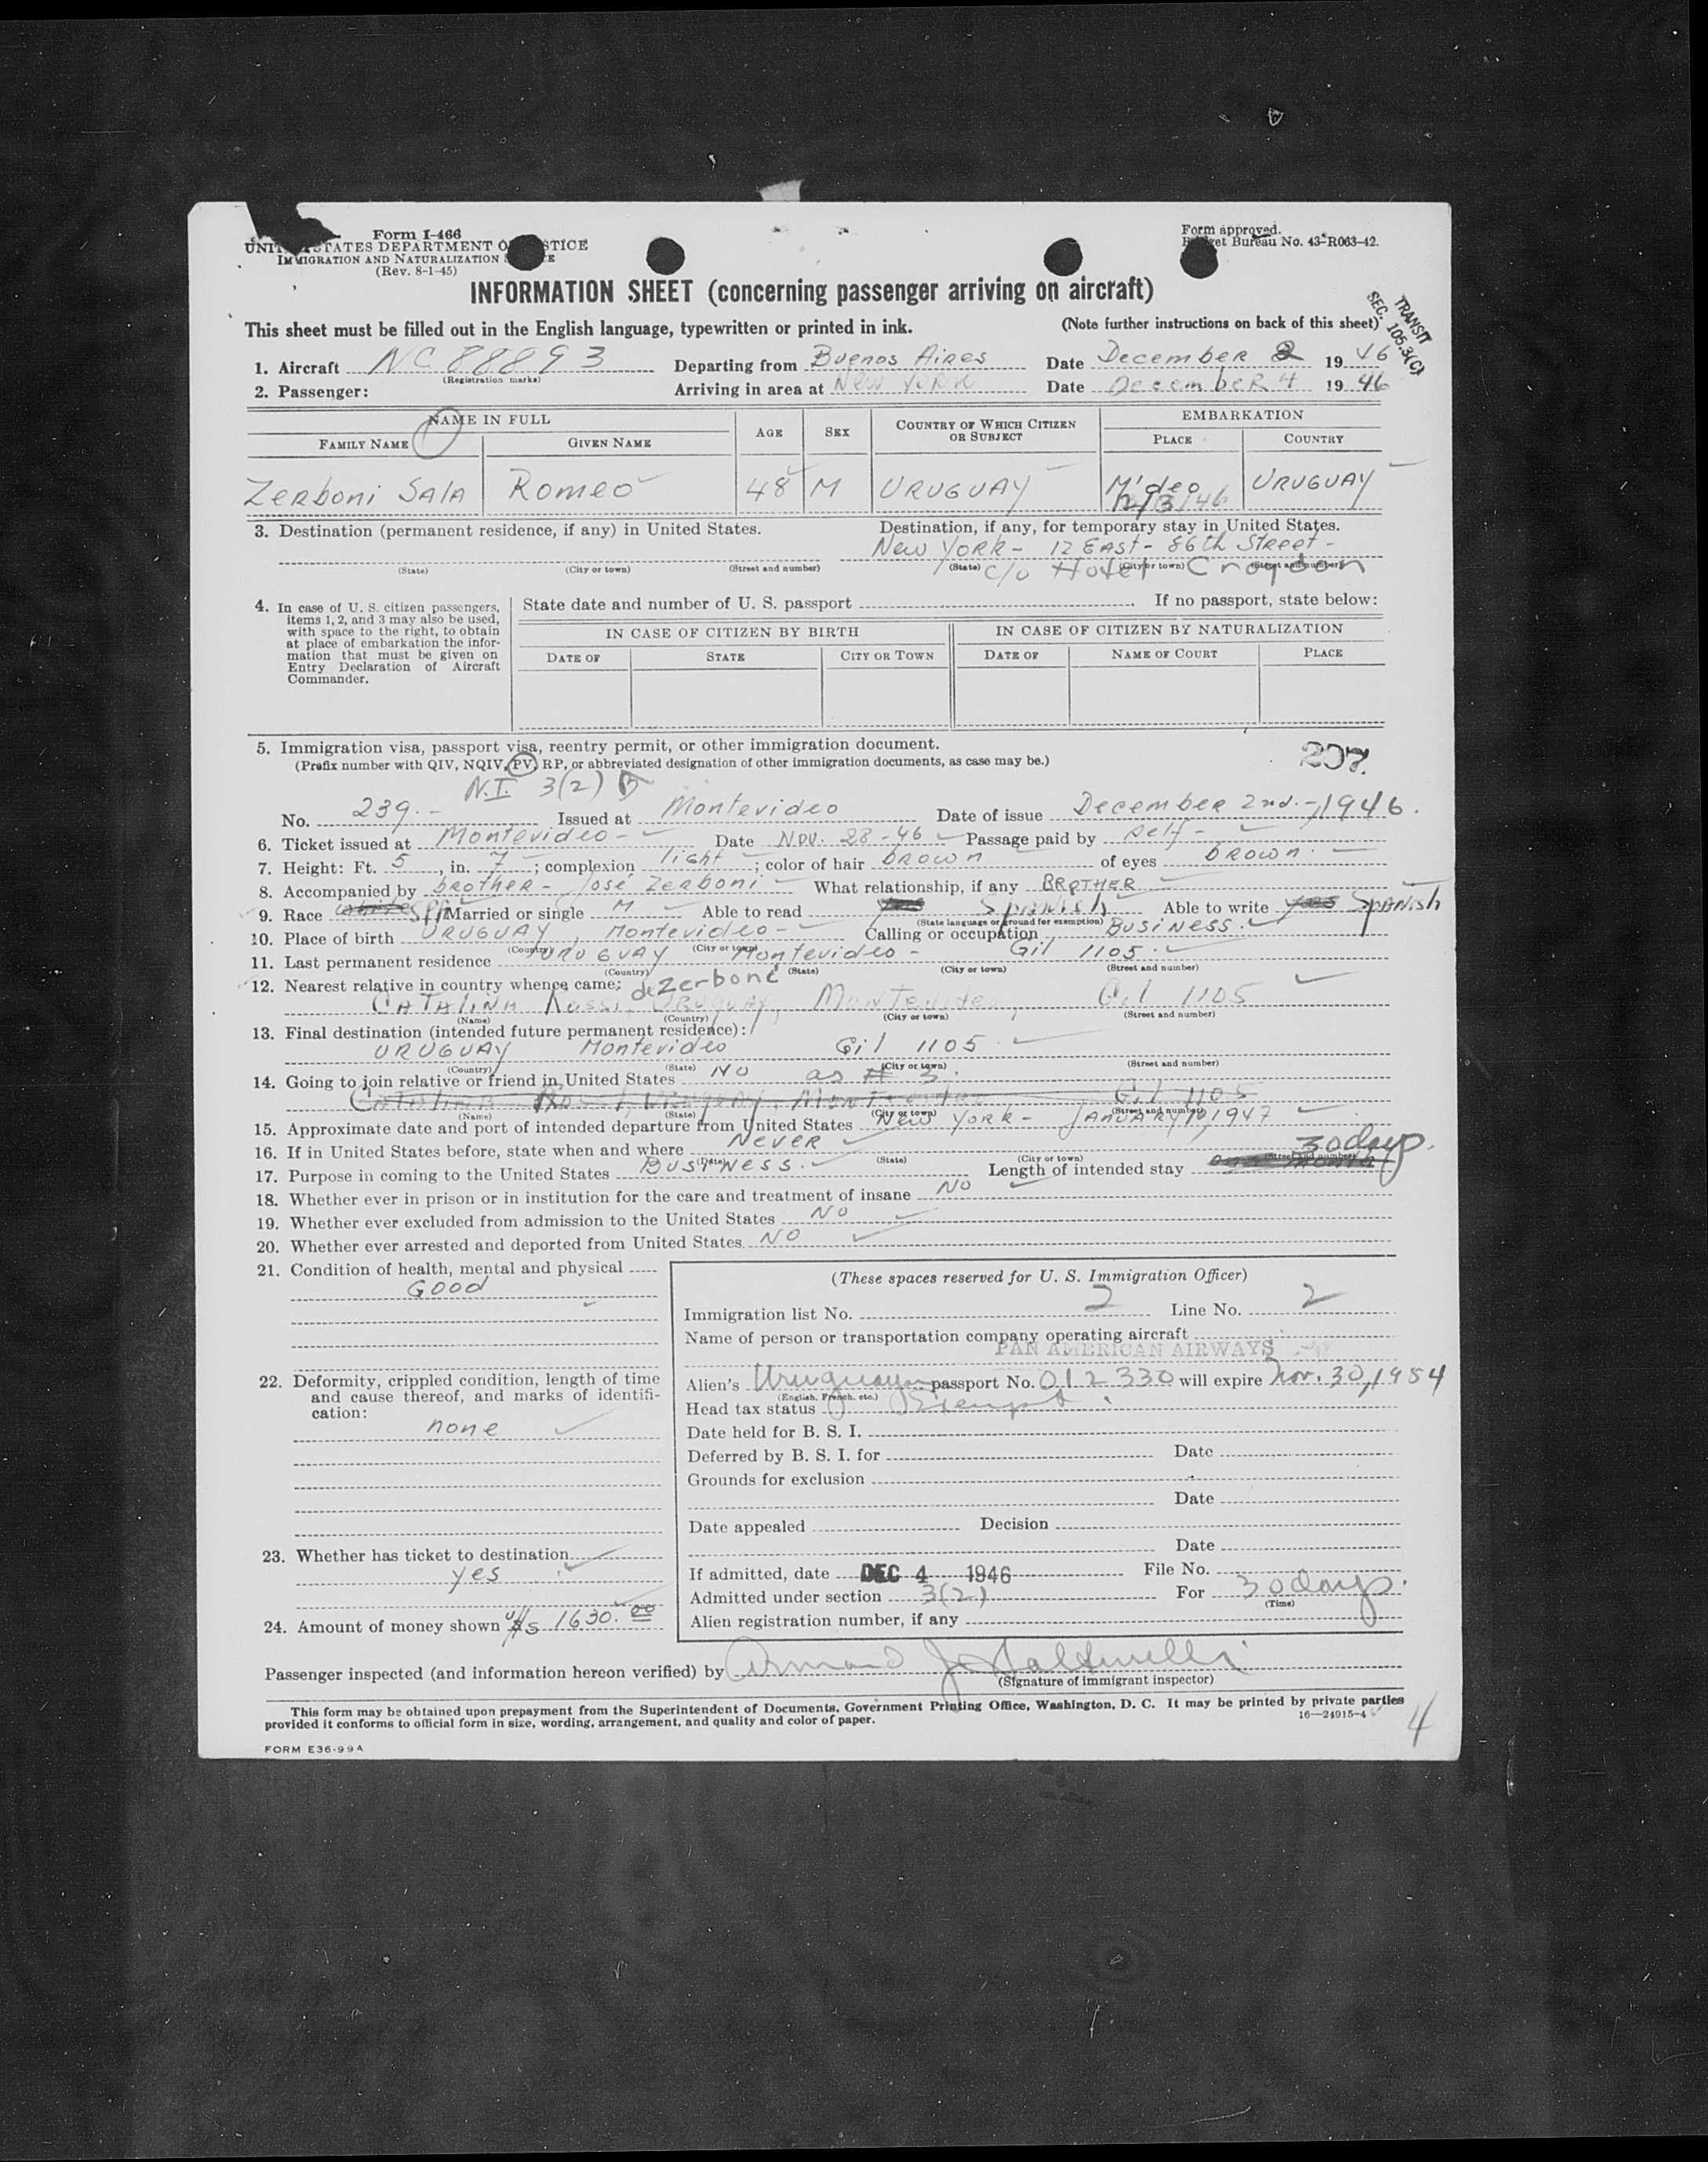 Form I-466
UNITED STATES DEPARTMENT OF JUSTICE
IMMIGRATION AND NATURALIZATION
(Rev. 8-1-45)
Form approved.
Budget Bureau No. 43-R063-42.
INFORMATION SHEET (concerning passenger arriving on aircraft)
TRANSIT
SEC. 105.3(C)
This sheet must be filled out in the English language, typewritten or printed in ink. (Note further instructions on back of this sheet)
1. Aircraft NC 88893 Departing from Buenos Aires Date December 2 1946
(Registration marks)
2. Passenger: Arriving in area at New York Date December 4 1946
NAME IN FULL AGE SEX COUNTRY OF WHICH CITIZEN OR SUBJECT EMBARKATION
FAMILY NAME GIVEN NAME PLACE COUNTRY
Zerboni Sala Romeo 48 M URUGUAY M'deo URUGUAY
12/3/46
3. Destination (permanent residence, if any) in United States. Destination, if any, for temporary stay in United States.
New York - 12 East - 86th Street -
(State) (City or town) (Street and number) (State) (City or town) (Street and number)
c/o Hotel Croydon
4. In case of U. S. citizen passengers, items 1, 2, and 3 may also be used, with space to the right, to obtain at place of embarkation the information that must be given on Entry Declaration of Aircraft Commander.
State date and number of U. S. passport If no passport, state below:
IN CASE OF CITIZEN BY BIRTH IN CASE OF CITIZEN BY NATURALIZATION
DATE OF STATE CITY OR TOWN DATE OF NAME OF COURT PLACE
5. Immigration visa, passport visa, reentry permit, or other immigration document.
(Prefix number with QIV, NQIV, PV, RP, or abbreviated designation of other immigration documents, as case may be.)
207.
N.I. 3(2)
No. 239.- Issued at Montevideo Date of issue December 2nd.-, 1946.
6. Ticket issued at Montevideo- Date Nov. 28-46 Passage paid by self-
7. Height: Ft. 5, in. 7; complexion light; color of hair brown of eyes brown
8. Accompanied by brother - José Zerboni What relationship, if any BROTHER
9. Race white Married or single M Able to read yes Spanish Able to write yes SPANish
(State language or ground for exemption)
10. Place of birth URUGUAY, Montevideo- Calling or occupation Business.
(Country) (City or town)
11. Last permanent residence URUGUAY Montevideo - Gil 1105.
(Country) (State) (City or town) (Street and number)
12. Nearest relative in country whence came: de Zerboni
CATALINA Rossi, URUGUAY, Montevideo, Gil 1105
(Name) (Country) (City or town) (Street and number)
13. Final destination (intended future permanent residence):
URUGUAY Montevideo Gil 1105
(Country) (State) (City or town) (Street and number)
14. Going to join relative or friend in United States NO as # 3.
Catalina Rossi, Uruguay, Montevideo Gil 1105
(Name) (State) (City or town) (Street and number)
15. Approximate date and port of intended departure from United States New York - JANUARY 10, 1947
16. If in United States before, state when and where Never
(Date) (State) (City or town) (Street and number)
17. Purpose in coming to the United States Business. Length of intended stay one month 30 days.
18. Whether ever in prison or in institution for the care and treatment of insane NO
19. Whether ever excluded from admission to the United States NO
20. Whether ever arrested and deported from United States NO
21. Condition of health, mental and physical
Good
22. Deformity, crippled condition, length of time and cause thereof, and marks of identification:
none
23. Whether has ticket to destination
yes
24. Amount of money shown U/$S 1630.00
(These spaces reserved for U. S. Immigration Officer)
Immigration list No. 2 Line No. 2
Name of person or transportation company operating aircraft
PAN AMERICAN AIRWAYS
Alien's Uruguayan passport No. 012330 will expire Nov. 30, 1954
(English, French, etc.)
Head tax status Exempt
Date held for B. S. I.
Deferred by B. S. I. for Date
Grounds for exclusion
Date
Date appealed Decision
Date
If admitted, date DEC 4 1946 File No.
Admitted under section 3(2) For 30 days.
(Time)
Alien registration number, if any
Passenger inspected (and information hereon verified) by Armand J.
(Signature of immigrant inspector)
This form may be obtained upon prepayment from the Superintendent of Documents, Government Printing Office, Washington, D. C. It may be printed by private parties
provided it conforms to official form in size, wording, arrangement, and quality and color of paper.
16—24915-4
4
FORM E36-99A